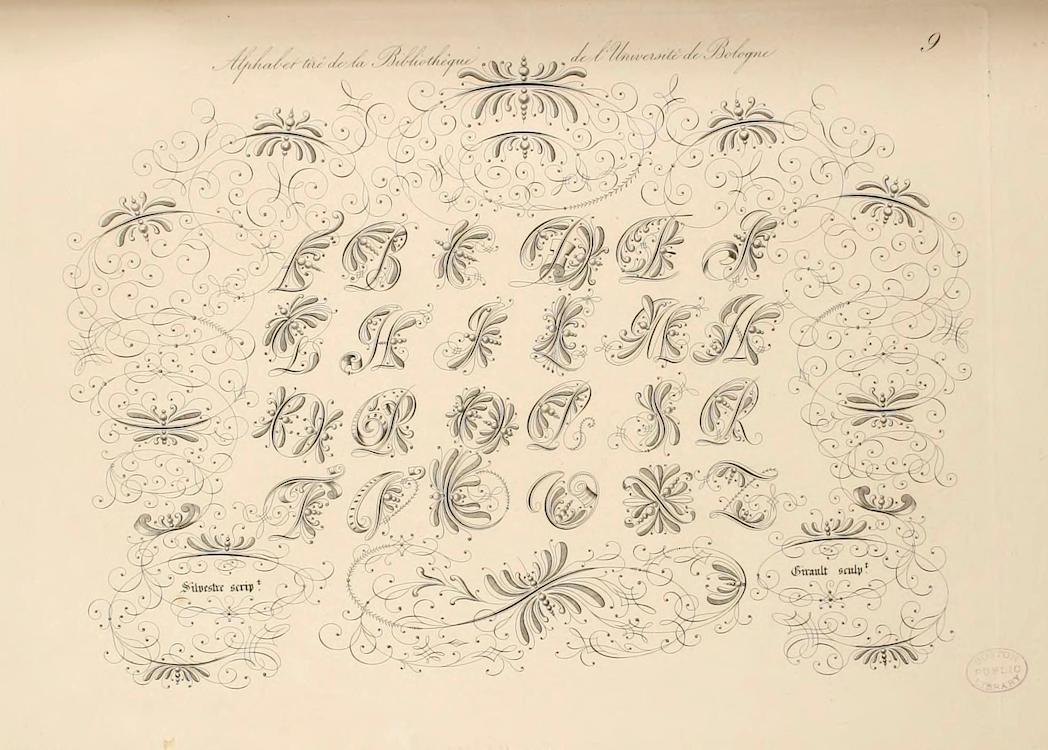 9
Alphabet tiré de la Bibliothèque de l'Université de Bologne
A B C D E F
G H I L M N
O P Q R S R
T V X Z
Silvestre scrip.t
Girault sculp.t
BOSTON
PUBLIC
LIBRARY